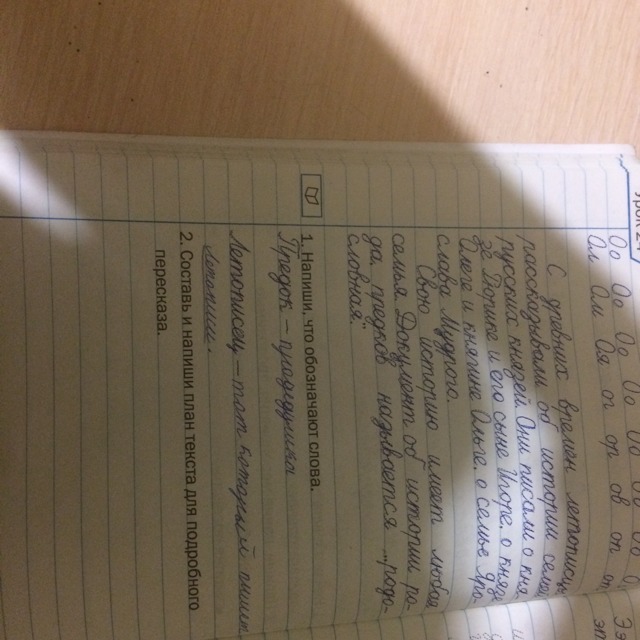 Оо Оо Оо Оо
Ол Ом Ов
С древних времен летописцы
рассказывали об истории семей
русских князей. Они писали о кня
зе Рюрике и его сыне Игоре, о князе
Олеге и княгине Ольге, о семье Яро
слава Мудрого.
Свою историю имеет любая
семья. Документ об истории ро
да, предков называется „родо
словная".
1. Напиши, что обозначают слова.
Предок – прадедушка
Летописец – тот который пишет
летописи.
2. Составь и напиши план текста для подробного
пересказа.